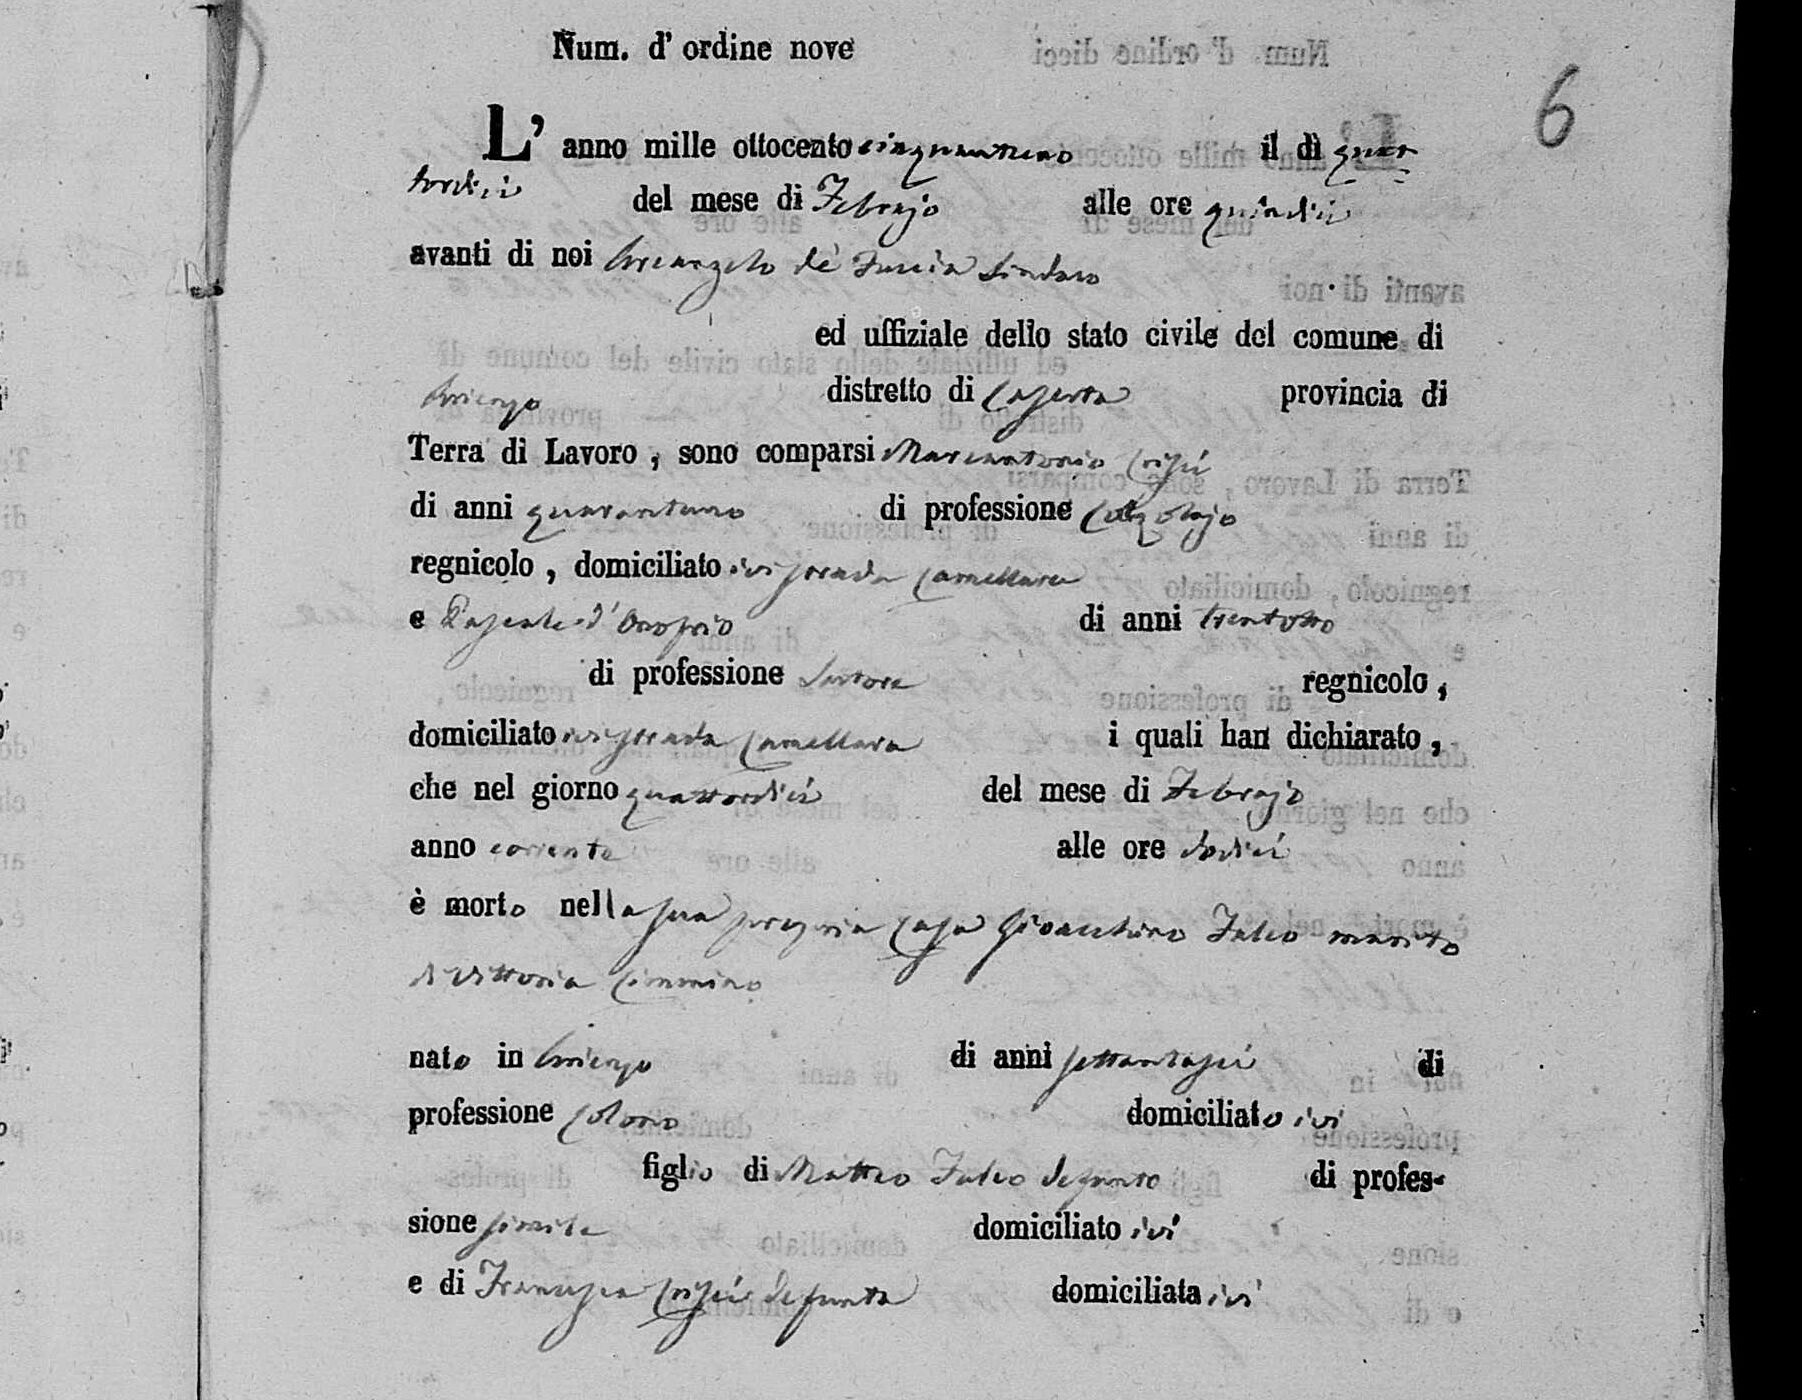 Num. d' ordine nove
6
L' anno mille ottocento cinquantuno il dì quat-
tordici del mese di Febrajo alle ore quindici
avanti di noi Arcangelo de Lucia Sindaco
ed uffiziale dello stato civile del comune di
Arienzo distretto di Caserta provincia di
Terra di Lavoro, sono comparsi Marcantonio Crisci
di anni quarantuno di professione Calzolajo
regnicolo, domiciliato ivi strada Camellara
e Pascale d'Onofrio di anni trentotto
di professione Sartore regnicolo,
domiciliato ivi strada Camellara i quali han dichiarato,
che nel giorno quattordici del mese di Febrajo
anno corrente alle ore dodici
è morto nella sua propria casa Gioacchino Falco marito
di Vittoria Cimmino
nato in Arienzo di anni settantasei di
professione colono domiciliato ivi
figlio di Matteo Falco defunto di profes-
sione simile domiciliato ivi
e di Francesca Crisci defunta domiciliata ivi